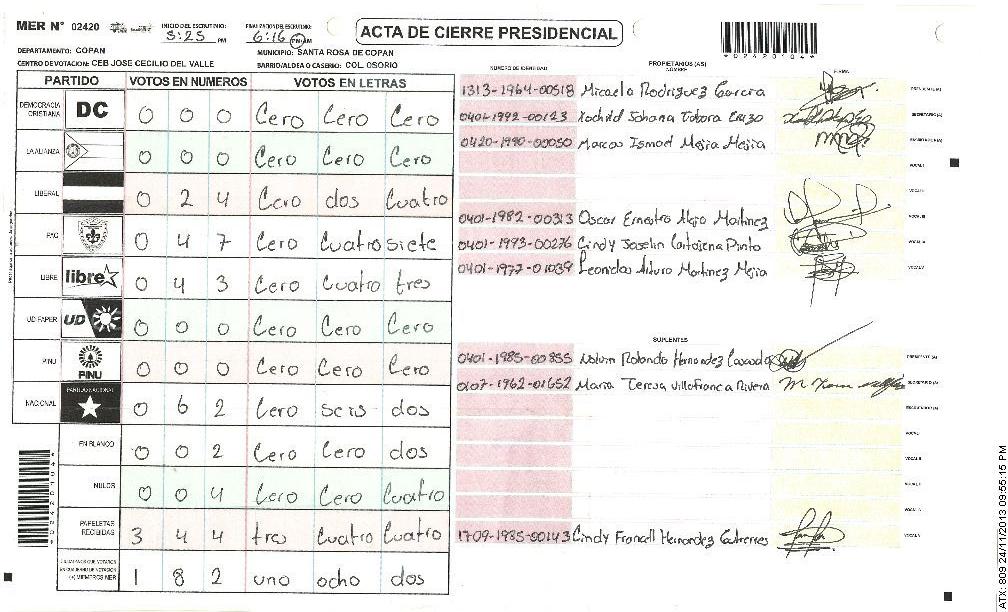 MER N° 02420 INICIO DEL ESCRUTINIO: 5:25 PM FINALIZACION DEL ESCRUTINIO: 6:16 PM AM
ACTA DE CIERRE PRESIDENCIAL
*02420104*
DEPARTAMENTO: COPAN MUNICIPIO: SANTA ROSA DE COPAN
CENTRO DE VOTACION: CEB JOSE CECILIO DEL VALLE BARRIO/ALDEA O CASERIO: COL. OSORIO
PARTIDO VOTOS EN NUMEROS VOTOS EN LETRAS
DEMOCRACIA CRISTIANA DC 0 0 0 Cero Cero Cero
LA ALIANZA 0 0 0 Cero Cero Cero
LIBERAL 0 2 4 Cero dos Cuatro
PAC 0 4 7 Cero Cuatro siete
LIBRE libre 0 4 3 Cero Cuatro tres
UD FAPER UD 0 0 0 Cero Cero Cero
PINU PINU 0 0 0 Cero Cero Cero
NACIONAL PARTIDO NACIONAL 0 6 2 Cero seis dos
EN BLANCO 0 0 2 Cero Cero dos
NULOS 0 0 4 Cero Cero Cuatro
PAPELETAS RECIBIDAS 3 4 4 tres Cuatro Cuatro
CIUDADANOS QUE VOTARON EN CUADERNO DE VOTACION (+) MIEMBROS MER 1 8 2 uno ocho dos
NUMERO DE IDENTIDAD PROPIETARIOS (AS) NOMBRE FIRMA
1313-1964-00518 Micaela Rodriguez Garcia PRESIDENTE (A)
0401-1992-00123 Xochild Johana Tabora Erazo SECRETARIO (A)
0420-1990-00050 Marcos Ismael Mejia Mejia ESCRUTADOR (A)
VOCAL I
VOCAL II
0401-1982-00313 Oscar Ernesto Mejia Martinez VOCAL III
0401-1993-00276 Cindy Joselin Cartajena Pinto VOCAL IV
0401-1977-01039 Leonidas Arturo Martinez Mejia VOCAL V
SUPLENTES
0401-1985-00855 Rolando Hernandez PRESIDENTE (A)
0107-1962-01652 Maria Teresa Villafranca Rivera SECRETARIO (A)
ESCRUTADOR (A)
VOCAL I
VOCAL II
VOCAL III
VOCAL IV
1709-1985-00143 Cindy Hernandez Gutierres VOCAL V
ATX: 809 24/11/2013 09:55:15 PM